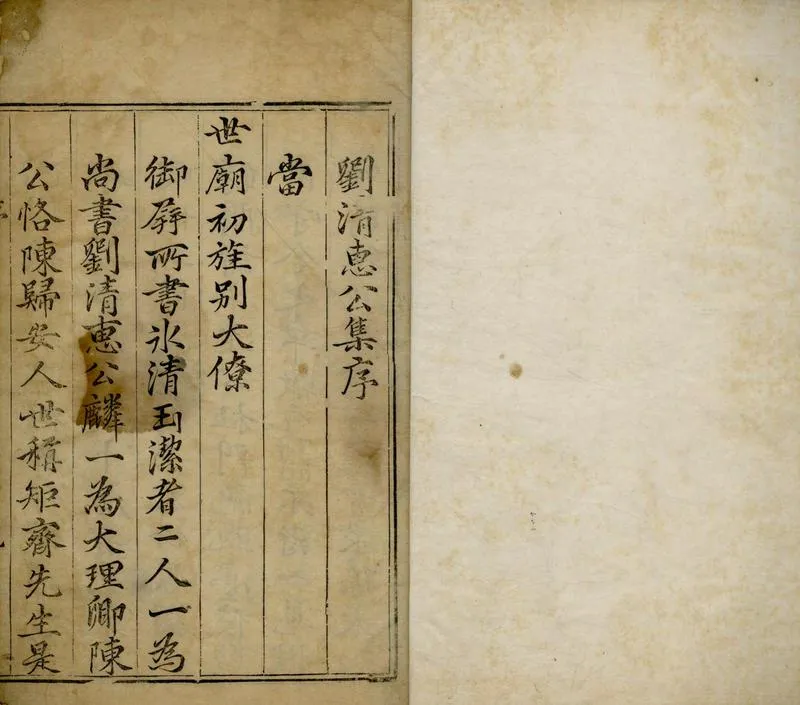 劉清惠公集序
當
世廟初旌别大僚
御屛所書氷清玉潔者二人一為
尚書劉清惠公麟一為大理卿陳
公恪陳歸安人世稱矩齋先生是